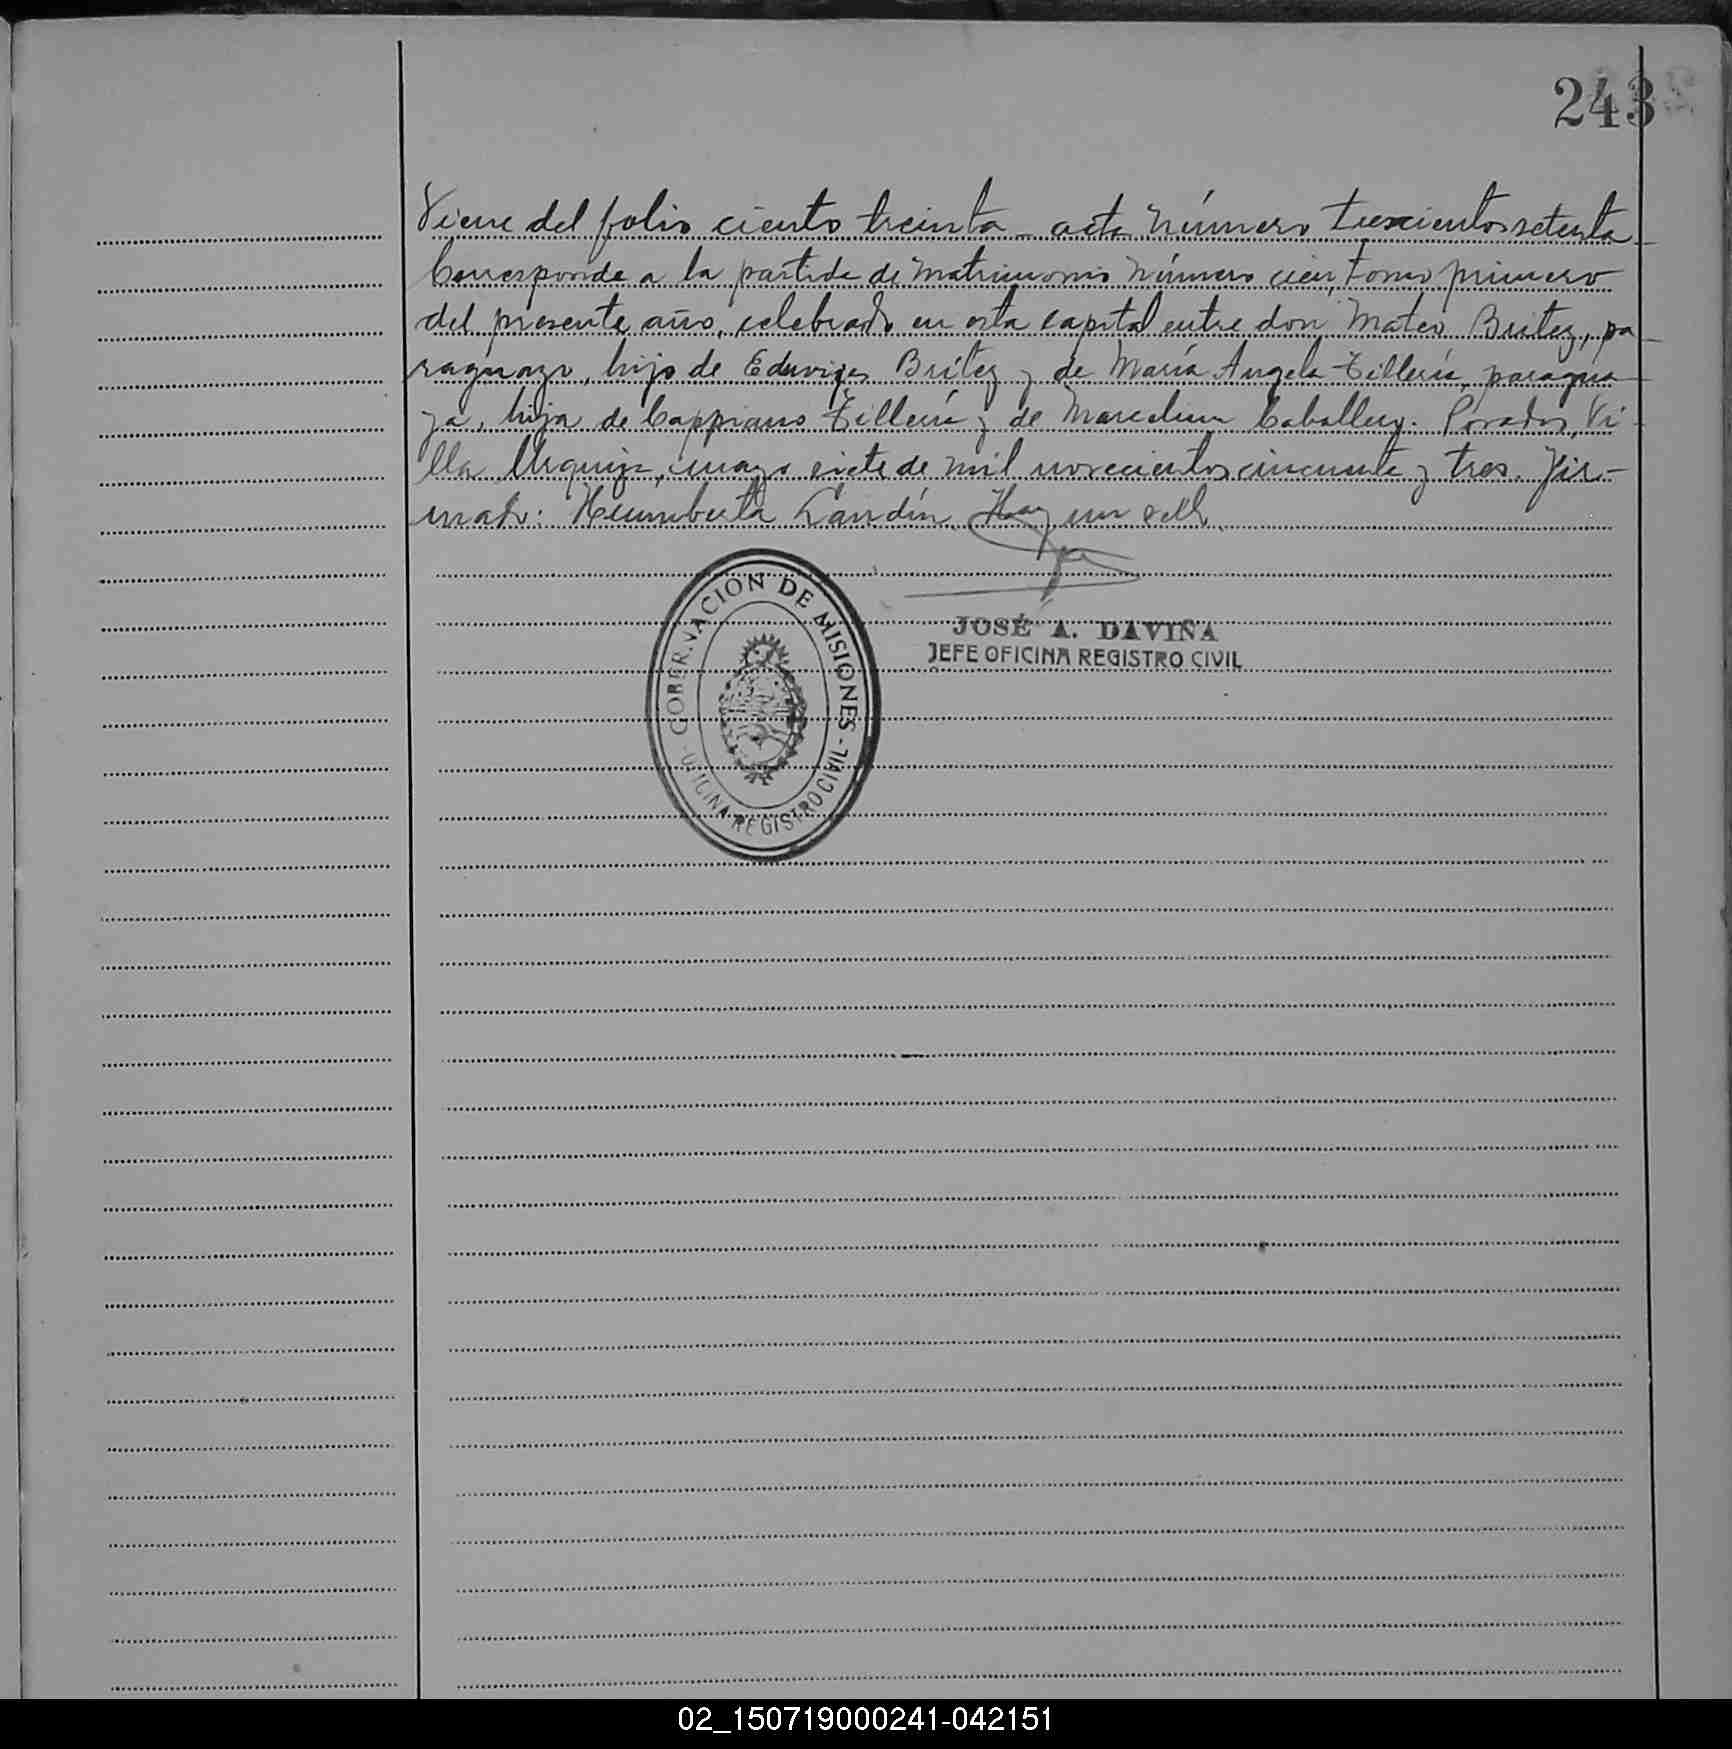 243
Viene del folio ciento treinta - acta número trescientos setenta
Corresponde a la partida de matrimonio número cien, tomo primero
del presente año, celebrado en esta capital entre don Mateo Britez, pa
raguayo, hijo de Eduviges Britez y de María Angela Tillería, paragua
ya, hija de Cappiano Tillería y de Marcelina Caballero. Posadas, Vi
lla Urquiza, mayo siete de mil novecientos cincuenta y tres. Fir-
mado: Humberto Landín. Hay un sello.
GOBERNACIÓN DE MISIONES - OFICINA REGISTRO CIVIL -
JOSÉ A. DAVIÑA
JEFE OFICINA REGISTRO CIVIL
02_150719000241-042151